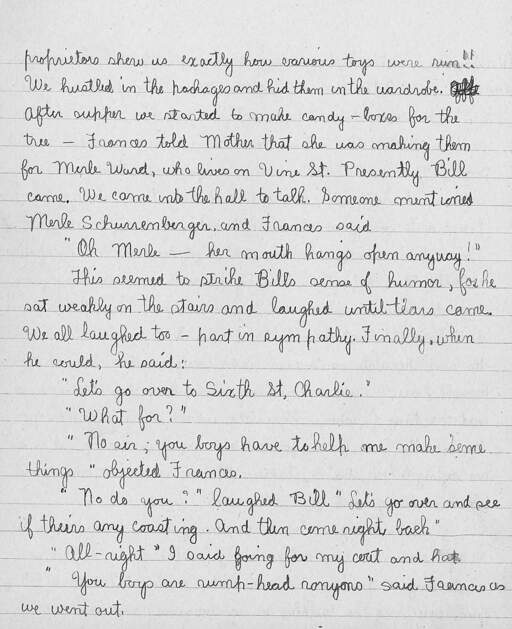 proprietors shew us exactly how various toys were run!!
We hustled in the packages and hid them in the wardrobe.
After supper we started to make candy-boxes for the
tree — Frances told Mother that she was making them
for Merle Ward, who lives on Vine St. Presently Bill
came. We came into the hall to talk. Someone mentioned
Merle Schurrenberger, and Frances said
"Oh Merle — her mouth hangs open anyway!"
This seemed to strike Bill's sense of humor, for he
sat weakly on the stairs and laughed until tears came.
We all laughed too - part in sympathy. Finally, when
he could, he said:
"Let's go over to Sixth St, Charlie."
"What for?"
"No sir; you boys have to help me make some
things" objected Frances.
"No do you?" laughed Bill "Let's go over and see
if theirs any coasting. And then come right back"
"All-right" I said going for my coat and hat
"You boys are rump-head ronyons" said Frances as
we went out.